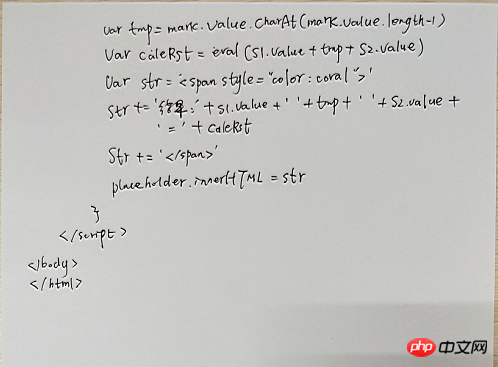 var tmp = mark.value.charAt(mark.value.length-1)
Var caleRst = eval (S1.value + tmp + S2.value)
Var str = '<span style="color:coral">'
Str += '结果:' + S1.value + ' ' + tmp + ' ' + S2.value +
' = ' + caleRst
Str += '</span>'
placeholder.innerHTML = str
}
</script>
</body>
</html>
php 中文网